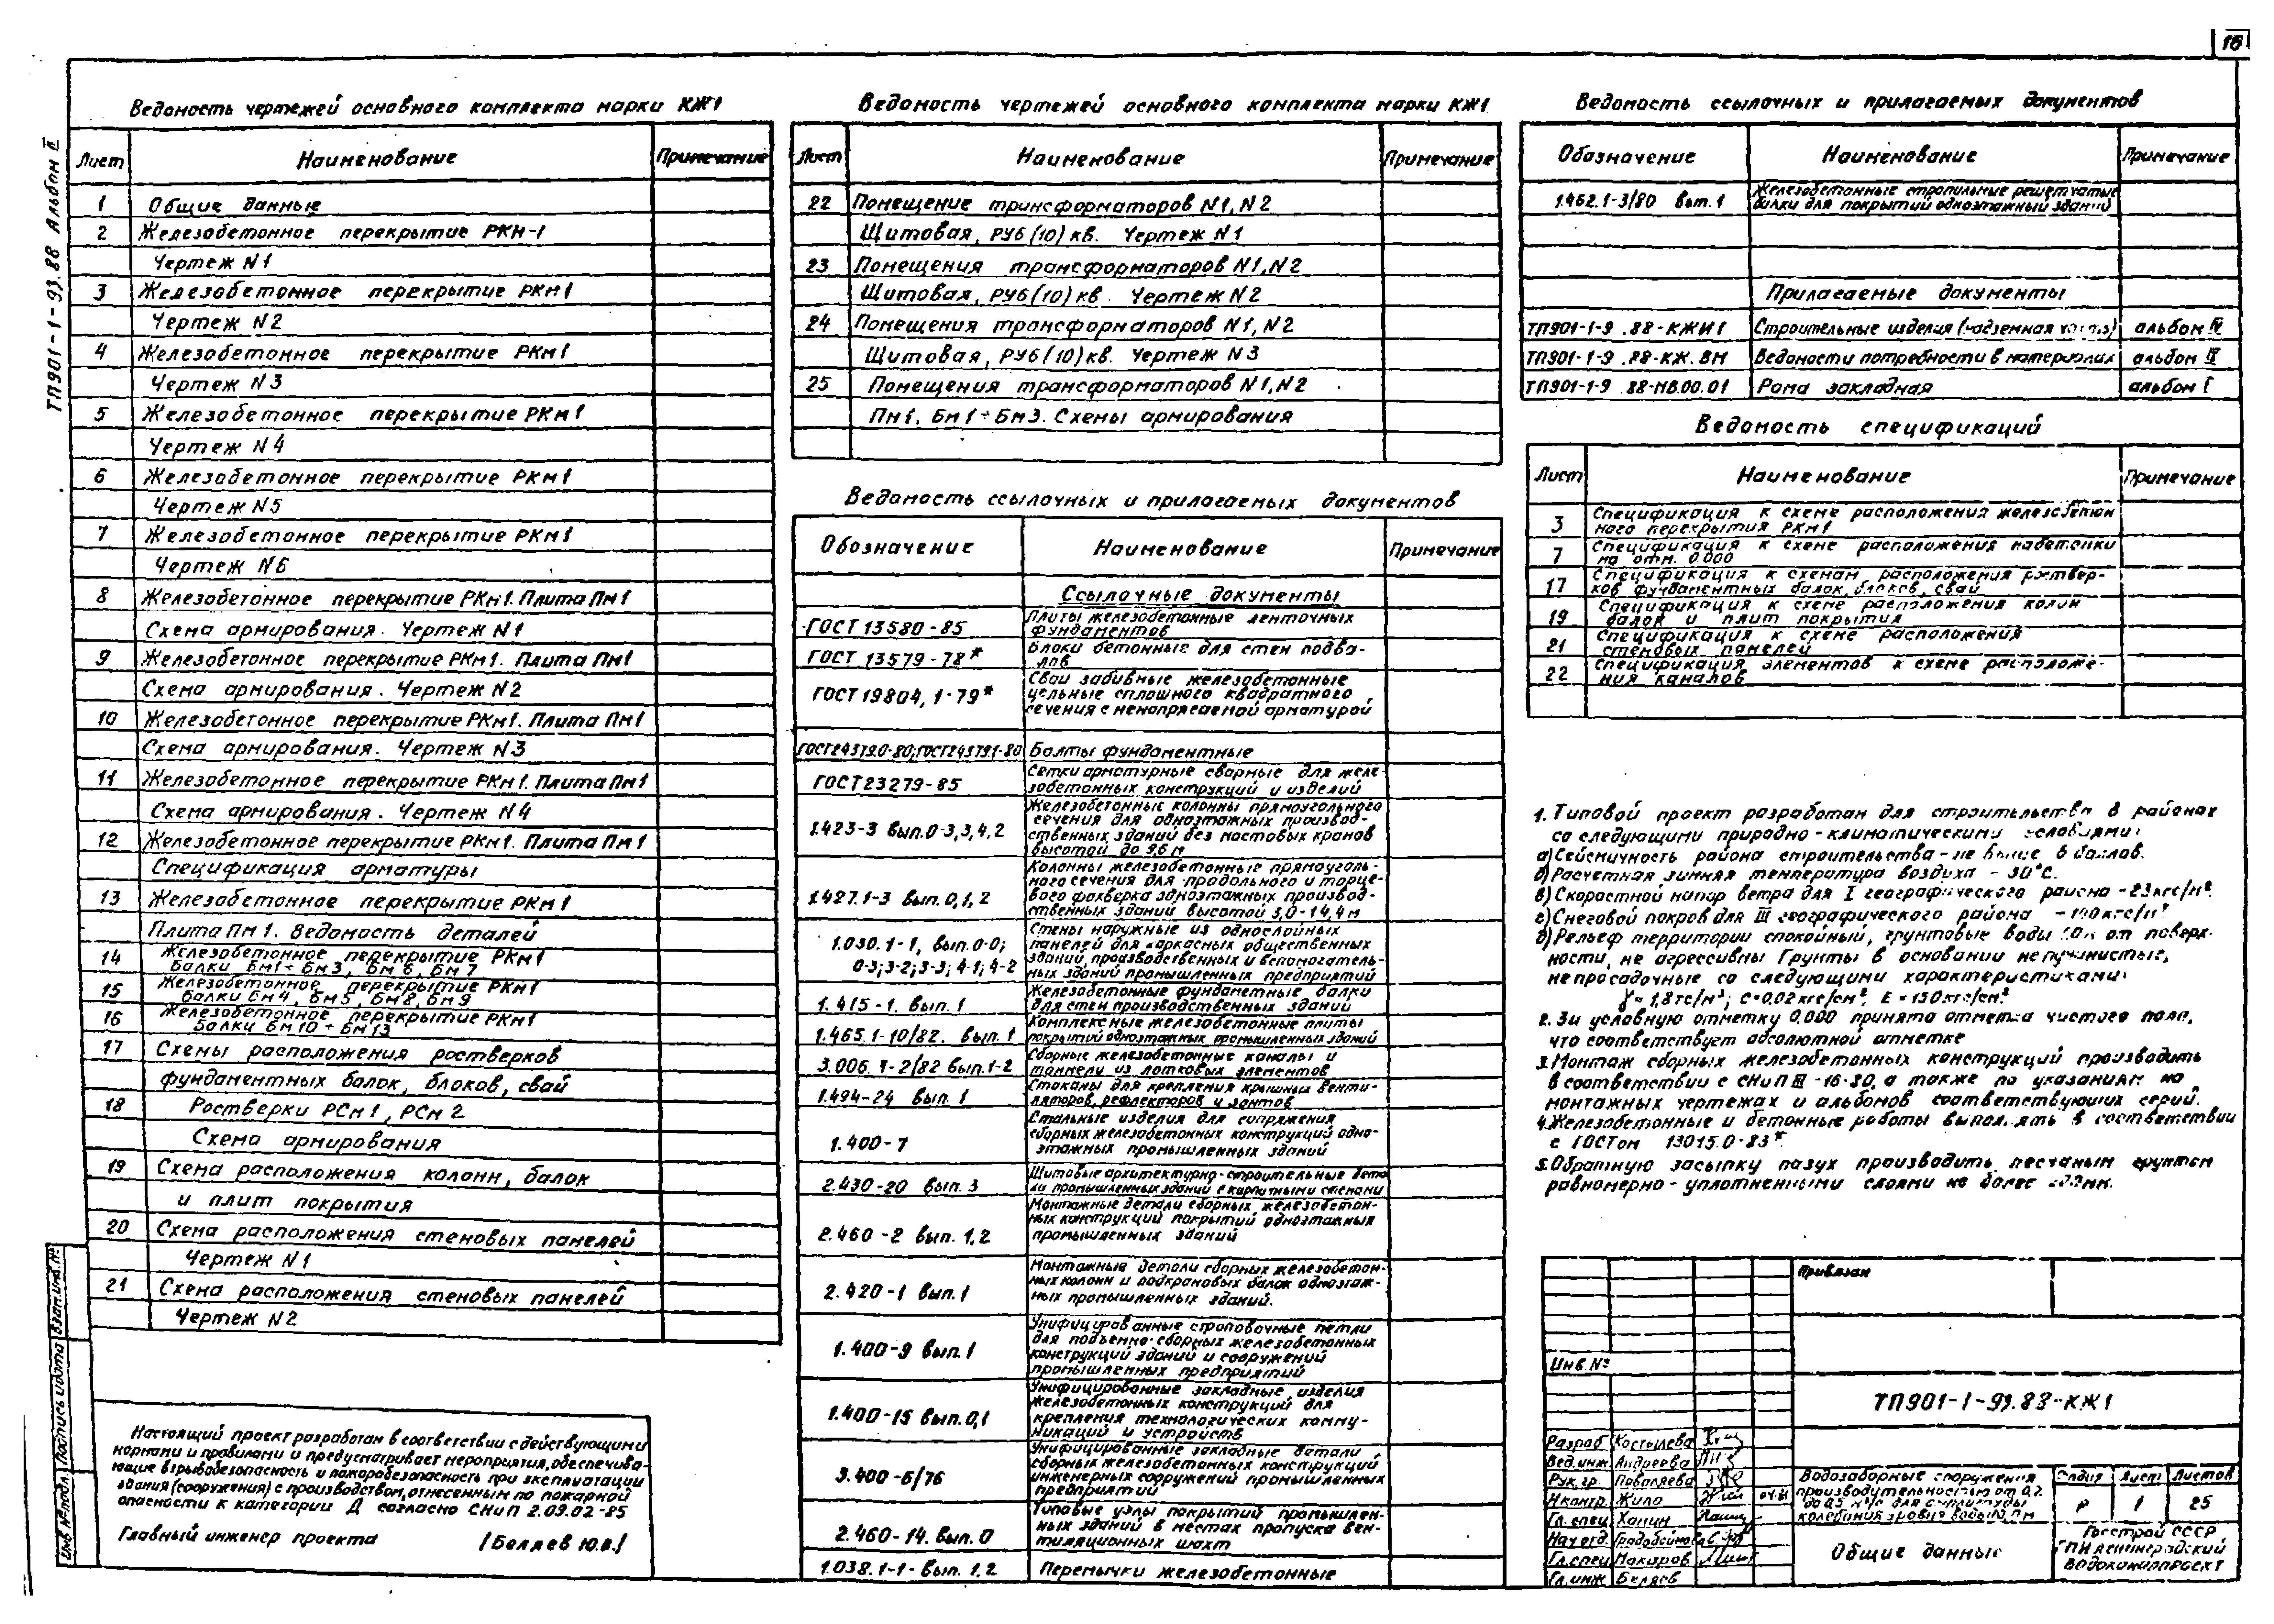 16
ТП901-1-93.88 Альбом II
Ведомость чертежей основного комплекта марки КЖ1
Лист Наименование Примечание
1 Общие данные
2 Железобетонное перекрытие РКН-1
Чертеж N1
3 Железобетонное перекрытие РКм1
Чертеж N2
4 Железобетонное перекрытие РКм1
Чертеж N3
5 Железобетонное перекрытие РКм1
Чертеж N4
6 Железобетонное перекрытие РКм1
Чертеж N5
7 Железобетонное перекрытие РКм1
Чертеж N6
8 Железобетонное перекрытие РКм1. Плита Пм1
Схема армирования. Чертеж N1
9 Железобетонное перекрытие РКм1. Плита Пм1
Схема армирования. Чертеж N2
10 Железобетонное перекрытие РКм1. Плита Пм1
Схема армирования. Чертеж N3
11 Железобетонное перекрытие РКм1. Плита Пм1
Схема армирования. Чертеж N4
12 Железобетонное перекрытие РКм1. Плита Пм1
Спецификация арматуры
13 Железобетонное перекрытие РКм1
Плита Пм1. Ведомость деталей
14 Железобетонное перекрытие РКм1
Балки Бм1÷Бм3, Бм6, Бм7
15 Железобетонное перекрытие РКм1
Балки Бм4, Бм5, Бм8, Бм9
16 Железобетонное перекрытие РКм1
Балки Бм10÷Бм13
17 Схемы расположения ростверков
фундаментных балок, блоков, свай
18 Ростверки РСм1, РСм2
Схема армирования
19 Схема расположения колонн, балок
и плит покрытия
20 Схема расположения стеновых панелей
Чертеж N1
21 Схема расположения стеновых панелей
Чертеж N2
Настоящий проект разработан в соответствии с действующими
нормами и правилами и предусматривает мероприятия, обеспечива-
ющие взрывобезопасность и пожаробезопасность при эксплуатации
здания (сооружения) с производством, отнесенным по пожарной
опасности к категории Д согласно СНиП 2.09.02-85
Главный инженер проекта /Беляев Ю.В./
Инв.№подл. Подпись и дата Взам.инв.№
Ведомость чертежей основного комплекта марки КЖ1
Лист Наименование Примечание
22 Помещение трансформаторов N1, N2
Щитовая, РУ6(10)кв. Чертеж N1
23 Помещения трансформаторов N1, N2
Щитовая, РУ6(10)кв. Чертеж N2
24 Помещения трансформаторов N1, N2
Щитовая, РУ6(10)кв. Чертеж N3
25 Помещения трансформаторов N1, N2
Пм1. Бм1÷Бм3. Схемы армирования
Ведомость ссылочных и прилагаемых документов
Обозначение Наименование Примечание
Ссылочные документы
ГОСТ 13580-85 Плиты железобетонные ленточных
фундаментов
ГОСТ 13579-78* Блоки бетонные для стен подва-
лов
ГОСТ 19804,1-79* Сваи забивные железобетонные
цельные сплошного квадратного
сечения с ненапрягаемой арматурой
ГОСТ24379.0-80;ГОСТ24379.1-80 Болты фундаментные
ГОСТ23279-85 Сетки арматурные сварные для желе-
зобетонных конструкций и изделий
1.423-3 вып.0-3,3,4,2 Железобетонные колонны прямоугольного
сечения для одноэтажных производ-
ственных зданий без мостовых кранов
высотой до 9,6 м
1.427.1-3 вып.0,1,2 Колонны железобетонные прямоуголь-
ного сечения для продольного и торце-
вого фахверка одноэтажных производ-
ственных зданий высотой 3,0-14,4 м
1.030.1-1, вып.0-0; 0-3;3-2;3-3;4-1;4-2 Стены наружные из однослойных
панелей для каркасных общественных
зданий, производственных и вспомогатель-
ных зданий промышленных предприятий
1.415-1. вып.1 Железобетонные фундаметные балки
для стен производственных зданий
1.465.1-10/82. вып.1 Комплексные железобетонные плиты
покрытий одноэтажных промышленных зданий
3.006.1-2/82 вып.1-2 Сборные железобетонные каналы и
тоннели из лотковых элементов
1.494-24 вып.1 Стаканы для крепления крышных венти-
ляторов, дефлекторов и зонтов
1.400-7 Стальные изделия для сопряжения
сборных железобетонных конструкций одно-
этажных промышленных зданий
2.430-20 вып.3 Щитовые архитектурно-строительные дета
ли промышленных зданий с кирпичными стенами
2.460-2 вып.1,2 Монтажные детали сборных железобетон-
ных конструкций покрытий одноэтажных
промышленных зданий
2.420-1 вып.1 Монтажные детали сборных железобетон-
ных колонн и подкрановых балок одноэтаж-
ных промышленных зданий.
1.400-9 вып.1 Унифицированные строповочные петли
для подъемно-сборных железобетонных
конструкций зданий и сооружений
промышленных предприятий
1.400-15 вып.0,1 Унифицированные закладные изделия
железобетонных конструкций для
крепления технологических комму-
никаций и устройств
3.400-6/76 Унифицированные закладные детали
сборных железобетонных конструкций
инженерных сооружений промышленных
предприятий
2.460-14. вып.0 Типовые узлы покрытий промышлен-
ных зданий в местах пропуска вен-
тиляционных шахт
1.038.1-1- вып.1,2 Перемычки железобетонные
Ведомость ссылочных и прилагаемых документов
Обозначение Наименование Примечание
1.462.1-3/80 вып.1 Железобетонные стропильные решетчатые
балки для покрытий одноэтажный зданий
Прилагаемые документы
ТП901-1-9 .88-КЖИ1 Строительные изделия (надземная часть) альбом IV
ТП901-1-9 .88-КЖ.ВМ Ведомости потребности в материалах альбом IX
ТП901-1-9 .88-НВ.00.01 Рама закладная альбом I
Ведомость спецификаций
Лист Наименование Примечание
3 Спецификация к схеме расположения железобетон
ного перекрытия РКм1
7 Спецификация к схеме расположения набетонки
на отм. 0.000
17 Спецификация к схемам расположения роствер-
ков фундаментных балок, блоков, свай
19 Спецификация к схеме расположения колонн
балок и плит покрытия
21 Спецификация к схеме расположения
стеновых панелей
22 Спецификация элементов к схеме расположе-
ния каналов
1. Типовой проект разработан для строительства в районах
со следующими природно-климатическими условиями:
а) Сейсмичность района строительства - не выше 6 баллов.
б) Расчетная зимняя температура воздуха - 30°С.
в) Скоростной напор ветра для I географического района - 23кгс/м²
г) Снеговой покров для III географического района - 100кгс/м²
д) Рельеф территории спокойный, грунтовые воды от поверх-
ности, не агрессивны. Грунты в основании непучинистые,
непросадочные со следующими характеристиками:
γ = 1,8 тс/м³; С=0,02 кгс/см²; Е = 150 кгс/см²
2. За условную отметку 0.000 принята отметка чистого пола,
что соответствует абсолютной отметке
3. Монтаж сборных железобетонных конструкций производить
в соответствии с СНиП III-16-80, а также по указаниям на
монтажных чертежах и альбомов соответствующих серий.
4. Железобетонные и бетонные работы выполнять в соответствии
с ГОСТом 13015.0-83*
5. Обратную засыпку пазух производить песчаным грунтом
равномерно-уплотненными слоями не более
Привязан
Инв.№
ТП901-1-93.88-КЖ1
Разраб Костылева
Вед.инж Андреева
Рук.гр. Паволяева
Н.контр. Жила
Гл.спец Ханин
Нач.отд.
Гл.спец Макаров
Гл.инж Беляев
Водозаборные сооружения
производительностью от 0,2
до 0,5 м³/с для амплитуды
колебания уровня воды
Стадия Лист Листов
Р 1 25
Общие данные
Госстрой СССР
ГПИ Ленинградский
Водоканалпроект